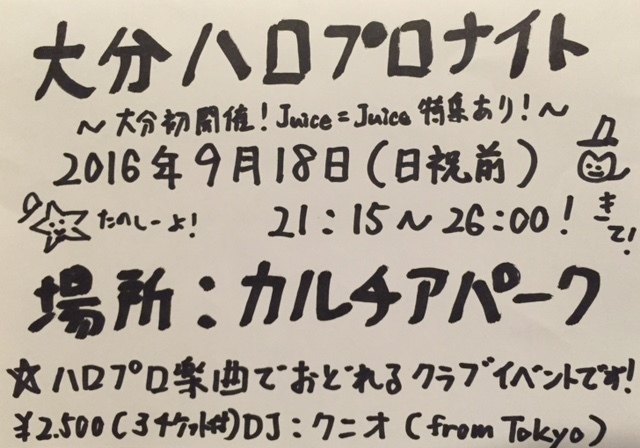 大分ハロプロナイト
～大分初開催！Juice=Juice 特集あり！～
2016年9月18日（日祝前）
たのしーよ！ 21：15～26：00！ きて！
場所：カルチアパーク
☆ハロプロ楽曲でおどれるクラブイベントです！
¥2.500（3チケット付）DJ：クニオ（from Tokyo）